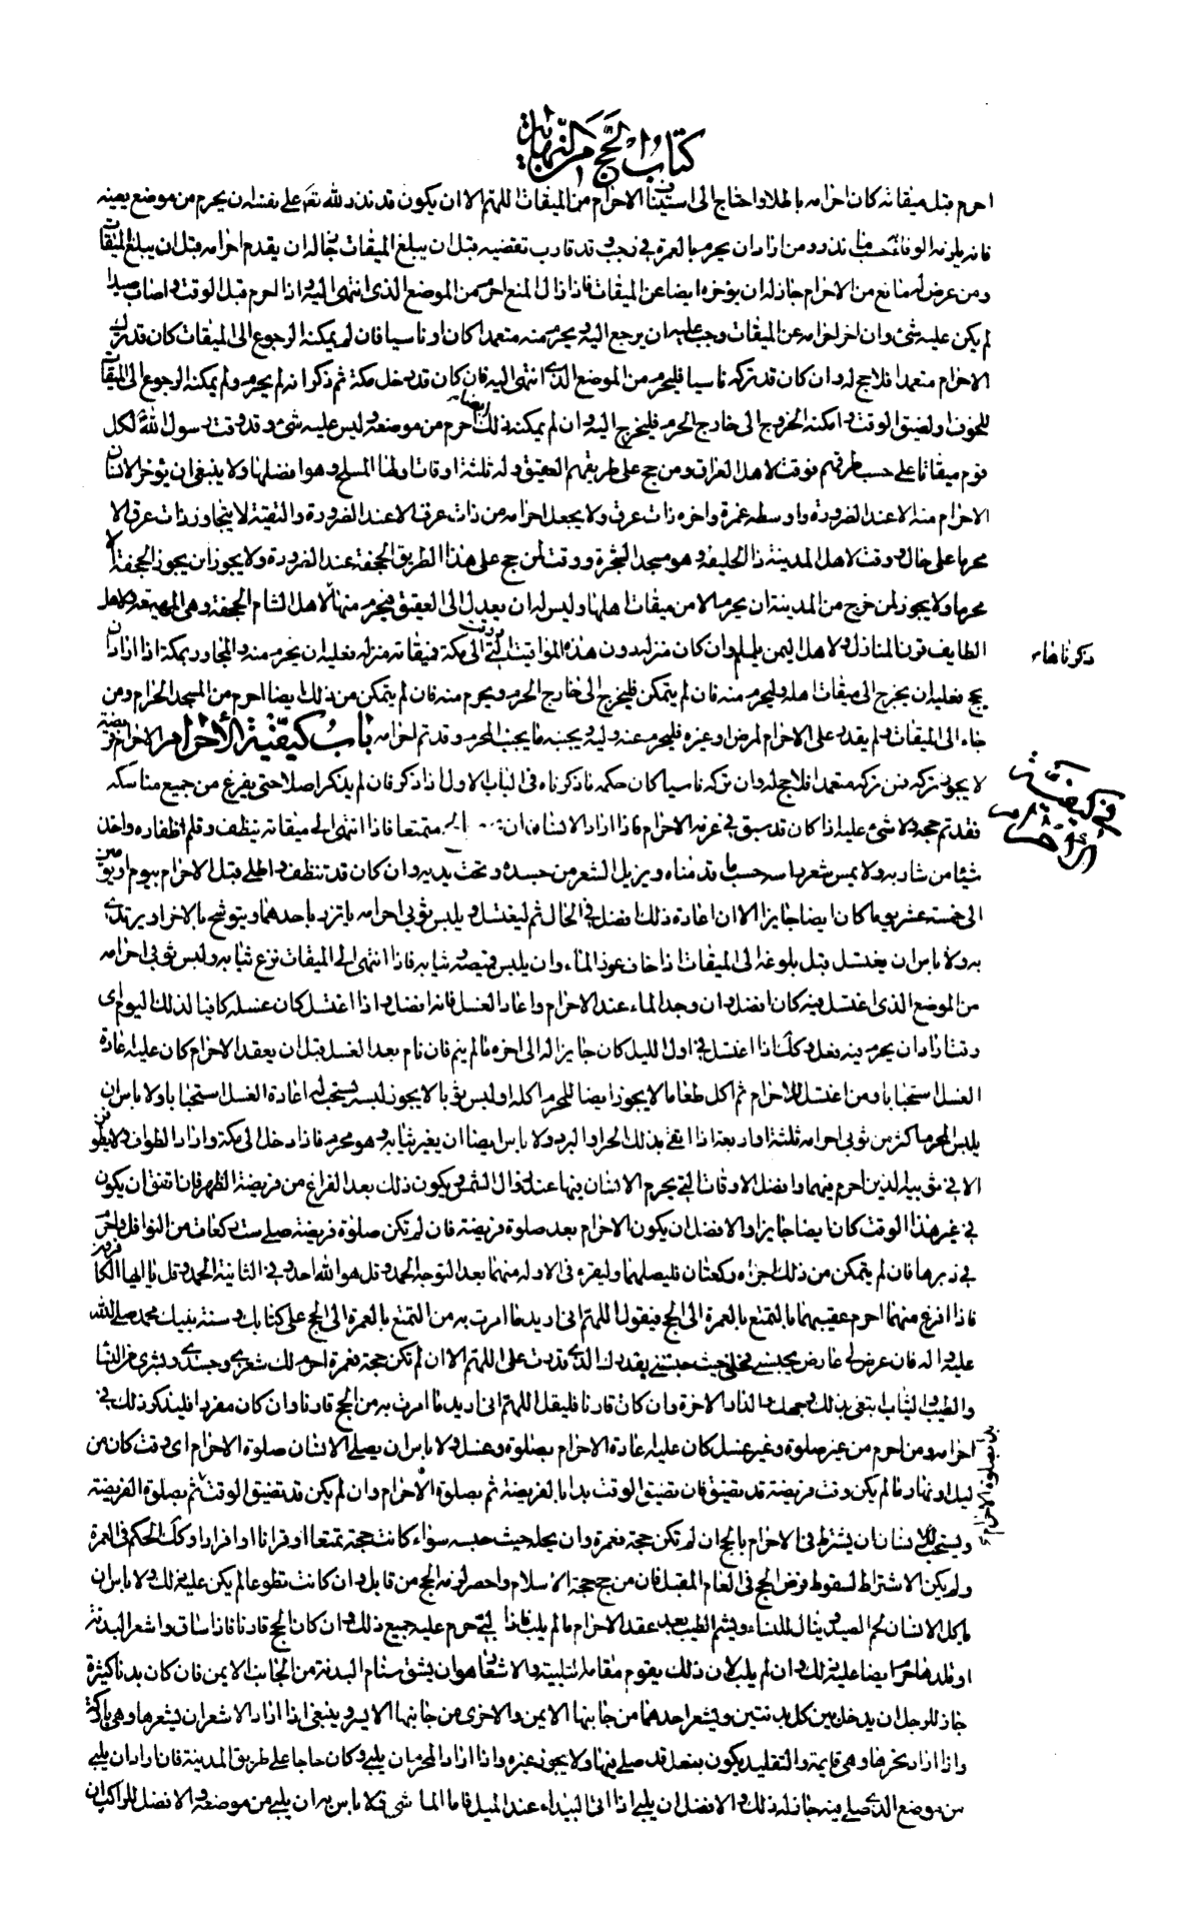 كتاب الحج من النهاية
احرم قبل ميقاته كان احرامه باطلا واحتاج الى استيناف الاحرام من الميقات اللهم الا ان يكون قد نذر لله تعا على نفسه ان يحرم من موضع بعينه
فانه يلزمه الوفاء به حسب ما نذره ومن اراد ان يحرم بالعمرة في رجب وقد قارب تقضيه قبل ان يبلغ الميقات جاز له ان يقدم احرامه قبل ان يبلغ الميقات
ومن عرض له مانع من الاحرام جاز له ان يؤخره ايضا عن الميقات فاذا زال المنع احرم من الموضع الذى انتهى اليه واذا احرم قبل الوقت واصاب صيدا
لم يكن عليه شئ وان اخر احرامه عن الميقات وجب عليه ان يرجع اليه ويحرم منه متعمدا كان او ناسيا فان لم يمكنه الرجوع الى الميقات كان قد ترك
الاحرام متعمدا فلا حج له وان كان قد تركه ناسيا فليحرم من الموضع الذى انتهى اليه فان كان قد دخل مكة ثم ذكر انه لم يحرم ولم يمكنه الرجوع الى الميقات
للخوف او لضيق الوقت وامكنه الخروج الى خارج الحرم فليخرج اليه وان لم يمكنه ذلك ايضا احرم من موضعه وليس عليه شئ وقد وقت رسول الله لكل
قوم ميقاتا على حسب طرقهم فوقت لاهل العراق ومن حج على طريقهم العقيق وله ثلثة اوقات اولها المسلح وهو افضلها ولا ينبغى ان يؤخر الانسان
الاحرام منه الا عند الضرورة واوسطه غمرة واخره ذات عرق ولا يجعل احرامه من ذات عرق الا عند الضرورة والتقية لا يتجاوز ذات عرق الا
محرما على حال ووقت لاهل المدينة ذا الحليفه وهو مسجد الشجرة ووقت لمن حج على هذا الطريق الجحفة عند الضرورة ولا يجوز ان يجوز الجحفة الا
محرما ولا يجوز لمن خرج من المدينة ان يحرم الا من ميقات اهلها وليس له ان يعدل الى العقيق فيحرم منها ولاهل الشام الجحفة وهى المهيعة ولاهل
الطايف قرن المنازل ولاهل اليمن يلملم وان كان منزله دون هذه المواقيت التى الى مكة فميقاته منزله فعليه ان يحرم منه والمجاور بمكة اذا اراد ان
ذكرناها
يحج فعليه ان يخرج الى ميقات اهله وليحرم منه فان لم يتمكن فليخرج الى خارج الحرم ويحرم منه فان لم يتمكن من ذلك ايضا احرم من المسجد الحرام ومن
جاء الى الميقات ولم يقدر على الاحرام لمرض او غيره فليحرم عنه وليه ويجنبه ما يجنب المحرم وقد تم احرامه باب كيفية الأحرام الاحرام فريضة
في كيفية الأحرام
لا يجوز تركه فمن تركه متعمدا فلا حج له وان تركه ناسيا كان حكمه ما ذكرناه في الباب الاول اذا ذكر فان لم يذكر اصلا حتى يفرغ من جميع مناسكه
فقد تم حجه ولا شئ عليه اذا كان قد سبق في عزمه الاحرام فاذا اراد الانسان ان متمتعا فاذا انتهى الى ميقاته ينظف وقلم اظفاره واخذ
شيئا من شاربه ولا يمس شعر راسه حسب ما قدمناه ويزيل الشعر من جسده وتحت يديه وان كان قد تنظف واطلى قبل الاحرام بيوم او يومين
الى خمسة عشر يوما كان ايضا جايزا الا ان اعادة ذلك افضل في الحال ثم ليغتسل ويلبس ثوبى احرامه ياتزر باحدهما ويتوشح بالاخر او يرتدى
به ولا باس ان يغتسل قبل بلوغه الى الميقات اذا خاف عوز الماء وان يلبس قميصه وثيابه فاذا انتهى الى الميقات نزع ثيابه ولبس ثوبى احرامه
من الموضع الذى اغتسل فيه كان افضل وان وجد الماء عند الاحرام واعاد الغسل فانه افضل واذا اغتسل كان غسله كافيا لذلك اليوم اى
وقت اراد ان يحرم فيه فعل وكذلك اذا اغتسل في اول الليل كان جايزا له الى اخره ما لم ينم فان نام بعد الغسل قبل ان يعقد الاحرام كان عليه اعادة
الغسل استحبابا ومن اغتسل للاحرام ثم اكل طعاما لا يجوز ايضا للمحرم اكله او لبس ثوبا لا يجوز لبسه يستحب له اعادة الغسل استحبابا ولا باس ان
يلبس المحرم اكثر من ثوبى احرامه ثلثة او اربعة اذا اتقى بذلك الحر او البرد ولا باس ايضا ان يغير ثيابه وهو محرم فاذا دخل الى مكة واراد الطواف فلا يطوفن
الا في ثوبيه الذين احرم فيهما وافضل الاوقات التى يحرم الانسان فيها عند زوال الشمس ويكون ذلك بعد الفراغ من فريضة الظهر فان اتفق ان يكون
في غير هذا الوقت كان ايضا جايزا والافضل ان يكون الاحرام بعد صلوة فريضة فان لم تكن صلوة فريضة صلى ست ركعات من النوافل واحرم
في دبرها فان لم يتمكن من ذلك اجزاه ركعتان فليصلهما وليقرء فى الاوله منهما بعد التوجه الحمد وقل هو الله احد وفي الثانية الحمد وقل يا ايها الكافرون
فاذا افرغ منهما احرم عقيبهما بالتمتع بالعمرة الى الحج فيقول اللهم انى اريد ما امرت به من التمتع بالعمرة الى الحج على كتابك وسنة نبيك محمد صلى الله
عليه واله فان عرض لى عارض يحبسنى فحلنى حيث حبستنى بقدرك الذى قدرت على اللهم الا ان لم تكن حجة فعمرة احرم لك شعرى وجسدى وبشرى من النساء
والطيب والثياب ابتغى بذلك وجهك والدار الاخرة وان كان قارنا فليقل اللهم انى اريد ما امرت به من الحج قارنا وان كان مفردا فليذكر ذلك في
احرامه ومن احرم من غير صلوة وغير غسل كان عليه اعادة الاحرام بصلوة وغسل ولا باس ان يصلى الانسان صلوة الاحرام اى وقت كان من
ليل او نهار ما لم يكن وقت فريضة قد تضيق فان تضيق الوقت بدا بالفريضة ثم بصلوة الاحرام وان لم يكن قد تضيق الوقت ثم بصلوة الفريضة
بدا بصلوة الاحرام
ويستحب للانسان ان يشترط فى الاحرام بالحج ان لم تكن حجة فعمرة وان يحله حيث حبسه سواء كانت حجة تمتعا او قرانا او افرادا وكذلك الحكم فى العمرة
ولم يكن الاشتراط لسقوط فرض الحج فى العام المقبل فان من حج حجة الاسلام واحصر لزمه الحج من قابل وان كانت تطوعا لم يكن عليه ذلك ولا باس ان
ياكل الانسان لحم الصيد وينال النساء ويشم الطيب بعد عقد الاحرام ما لم يلب فاذا لبى حرم عليه جميع ذلك وان كان الحج قارنا فاذا ساق واشعر البدنة
او قلدها حرم ايضا عليه ذلك وان لم يلب لان ذلك يقوم مقام التلبية والاشعار هو ان يشق سنام البدنة من الجانب الايمن فان كان بدنا كثيرة
جاز للرجل ان يدخل بين كل بدنتين ويشعر احدهما من جانبها الايمن والاخرى من جانبها الايسر وينبغى اذا اراد الاشعار ان يشعرها وهى باركة
واذا اراد نحرها وهى قايمة والتقليد يكون بنعل قد صلى فيها ولا يجوز غيره واذا اراد المحرم ان يلبى وكان حاجا على طريق المدينة فان اراد ان يلبى
من موضع الذى صلى فيه جاز له ذلك والافضل ان يلبى اذا اتى البيداء عند الميل فاما الماشى فلا باس به ان يلبى من موضعه والافضل للراكب ان